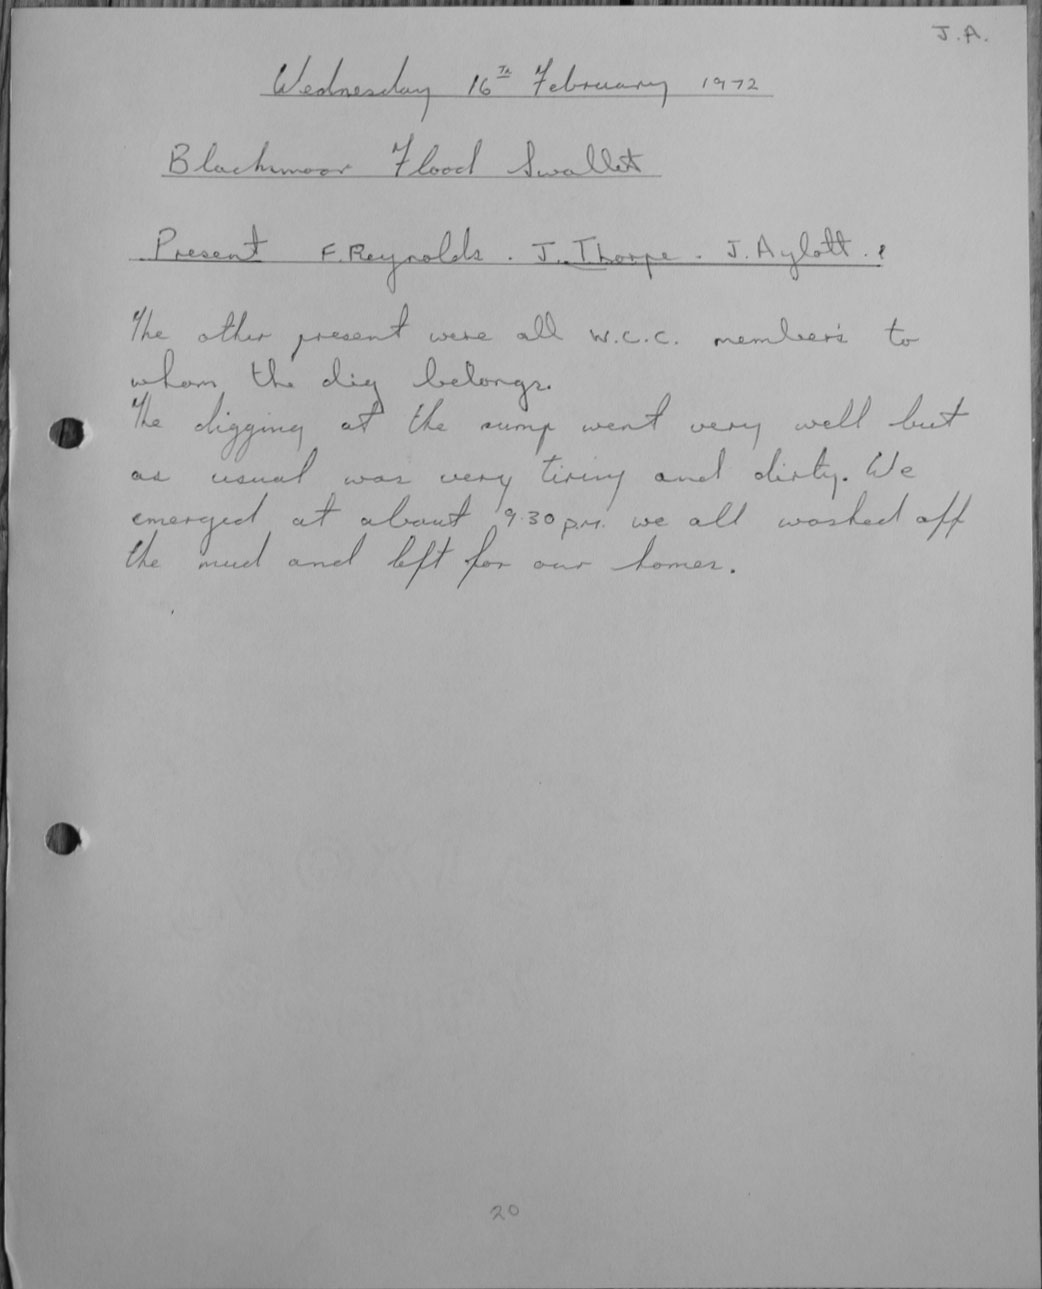 J.A.
Wednesday 16TH February 1972
Blackmoor Flood Swallet
Present F. Reynolds. J. Thorpe. J. Aylott. &
The other present were all W.C.C. member's to
whom the dig belongs.
The digging at the sump went very well but
as usual was very tiring and dirty. We
emerged at about 9.30 p.m. we all washed off
the mud and left for our homes.
20